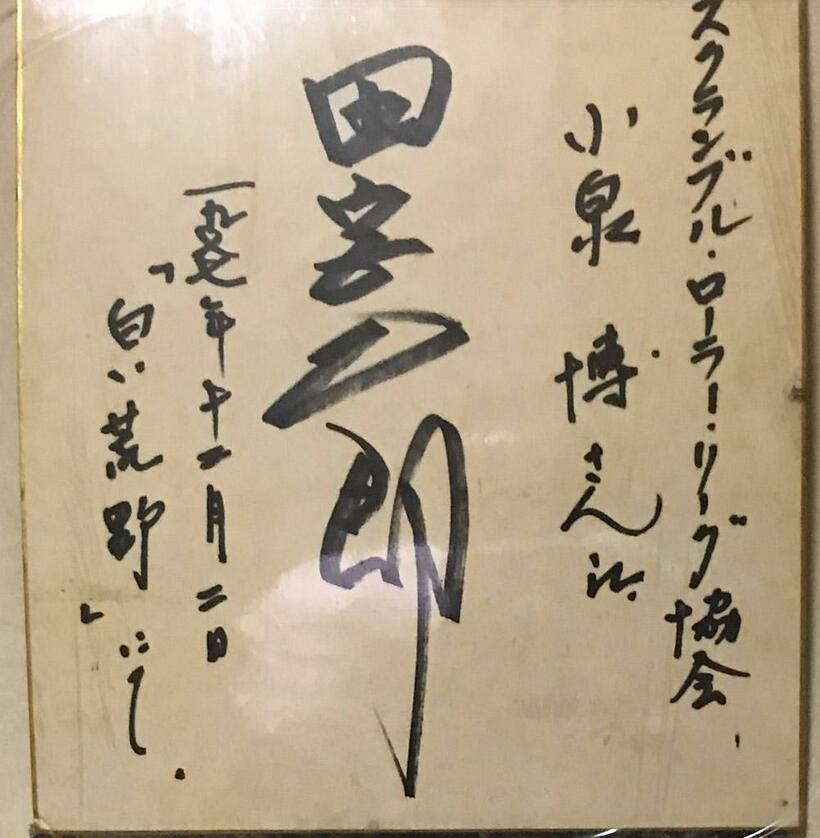 スクランブル・ローラー・リーグ協会.
小泉 博さん江.
田宮二郎
一九七七年十二月二日
「白い荒野」にて.